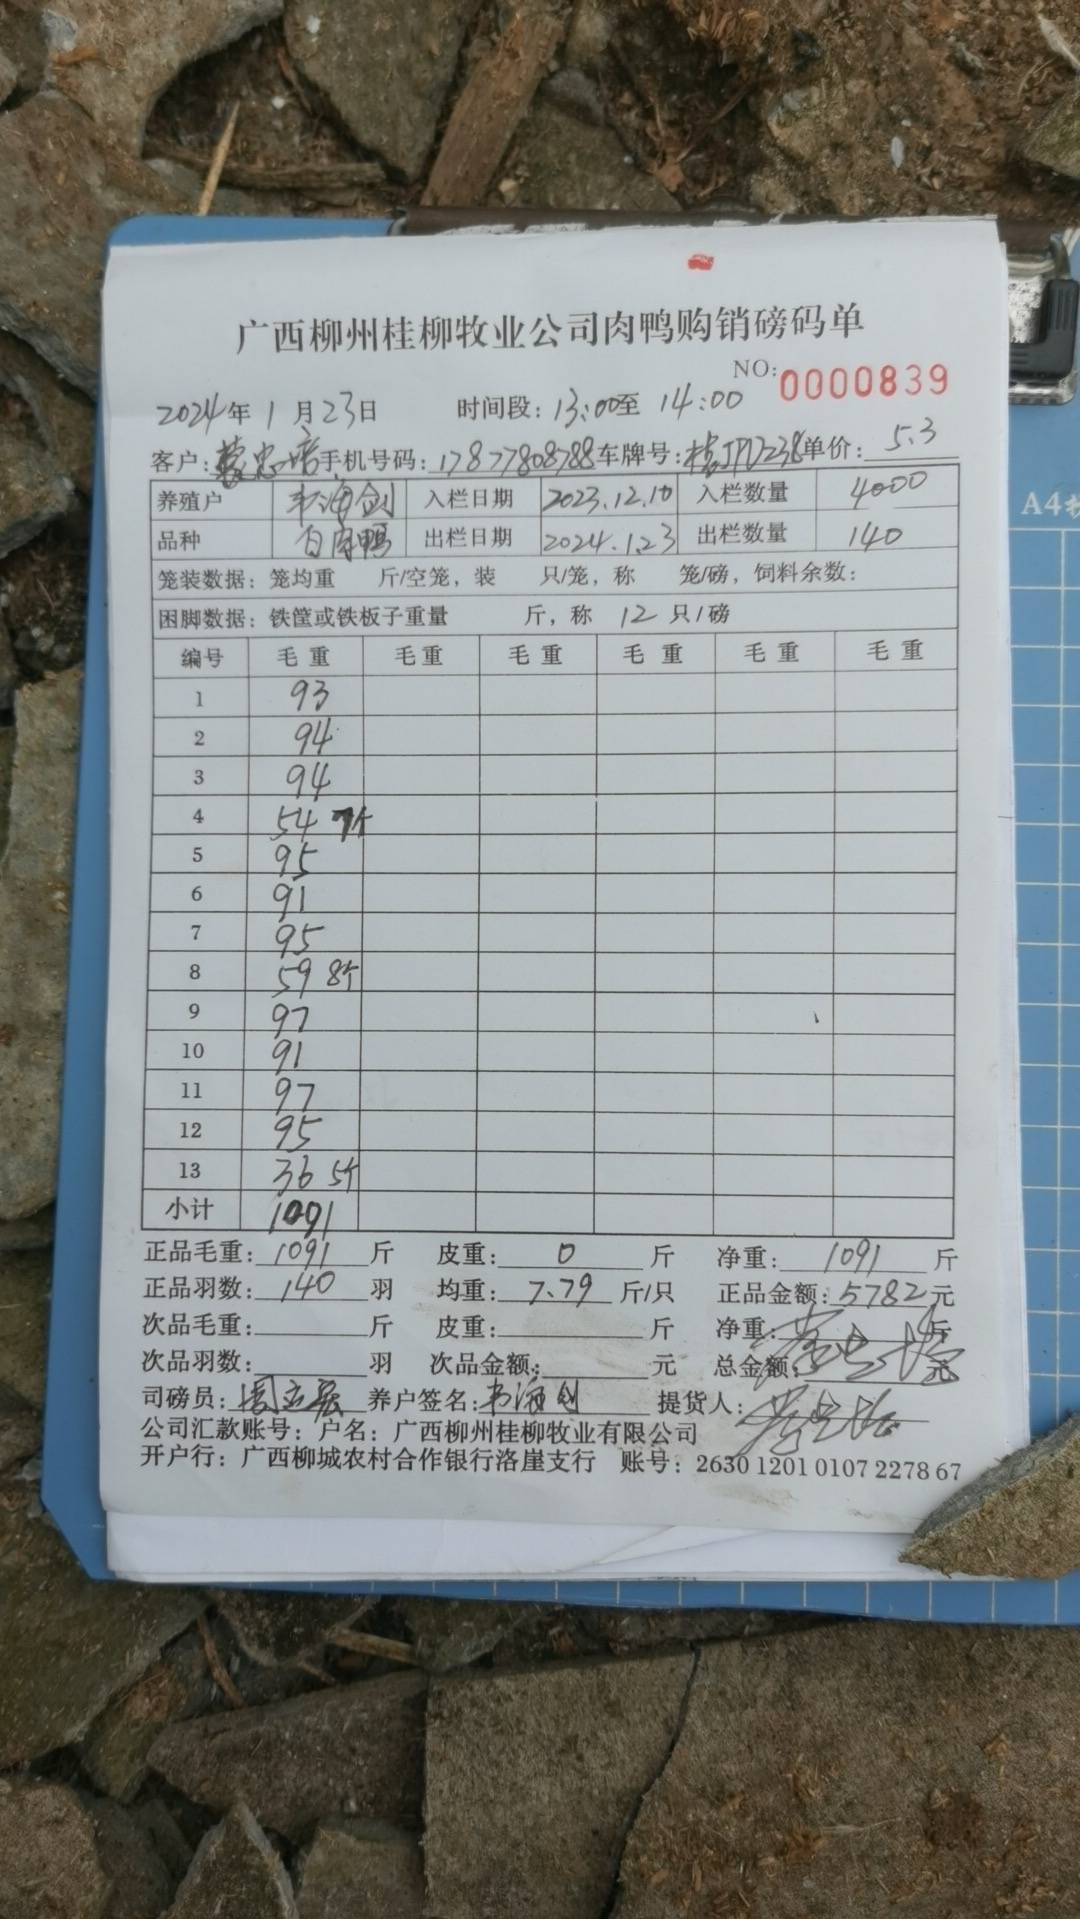 广西柳州桂柳牧业公司肉鸭购销磅码单
NO: 0000839
2024年 1月23日 时间段: 13:00至 14:00
客户: 蒙忠培 手机号码: 17877808788 车牌号: 单价: 5.3
养殖户 韦海剑 入栏日期 2023.12.10 入栏数量 4000
品种 白肉鸭 出栏日期 2024.1.23 出栏数量 140
笼装数据: 笼均重 斤/空笼, 装 只/笼, 称 笼/磅, 饲料余数:
困脚数据: 铁筐或铁板子重量 斤, 称 12 只/磅
编号 毛重 毛重 毛重 毛重 毛重 毛重
1 93
2 94
3 94
4 54 7个
5 95
6 91
7 95
8 59 8个
9 97
10 91
11 97
12 95
13 36 5个
小计 1091
正品毛重: 1091 斤 皮重: 0 斤 净重: 1091 斤
正品羽数: 140 羽 均重: 7.79 斤/只 正品金额: 5782元
次品毛重: 斤 皮重: 斤 净重: 斤
次品羽数: 羽 次品金额: 元 总金额: 元
司磅员: 养户签名: 韦海剑 提货人:
公司汇款账号: 户名: 广西柳州桂柳牧业有限公司
开户行: 广西柳城农村合作银行洛崖支行 账号: 2630 1201 0107 2278 67
A4